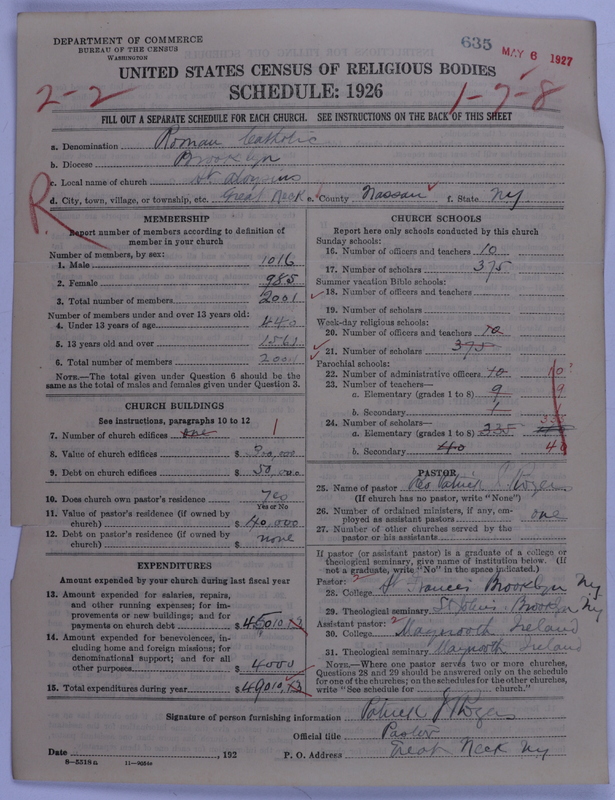 DEPARTMENT OF COMMERCE
BUREAU OF THE CENSUS
WASHINGTON
635
MAY 6 1927
UNITED STATES CENSUS OF RELIGIOUS BODIES
SCHEDULE: 1926
2-2
1-7-8
FILL OUT A SEPARATE SCHEDULE FOR EACH CHURCH. SEE INSTRUCTIONS ON THE BACK OF THIS SHEET
a. Denomination Roman Catholic
b. Diocese Brooklyn
c. Local name of church St Aloysius
d. City, town, village, or township, etc. Great Neck e. County Nassau f. State Ny.
R
MEMBERSHIP
Report number of members according to definition of
member in your church
Number of members, by sex:
1. Male 1016
2. Female 985
3. Total number of members 2001
Number of members under and over 13 years old:
4. Under 13 years of age 440
5. 13 years old and over 1561
6. Total number of members 2001
NOTE.—The total given under Question 6 should be the
same as the total of males and females given under Question 3.
CHURCH BUILDINGS
See instructions, paragraphs 10 to 12
7. Number of church edifices one 1
8. Value of church edifices $
9. Debt on church edifices $ 50,
10. Does church own pastor's residence Yes
Yes or No
11. Value of pastor's residence (if owned by
church) $ 40,000
12. Debt on pastor's residence (if owned by
church) $ none
EXPENDITURES
Amount expended by your church during last fiscal year
13. Amount expended for salaries, repairs,
and other running expenses; for im-
provements or new buildings; and for
payments on church debt $ 45010
14. Amount expended for benevolences, in-
cluding home and foreign missions; for
denominational support; and for all
other purposes $ 4000
15. Total expenditures during year $ 49010
CHURCH SCHOOLS
Report here only schools conducted by this church
Sunday schools:
16. Number of officers and teachers 10
17. Number of scholars 375
Summer vacation Bible schools:
18. Number of officers and teachers
19. Number of scholars
Week-day religious schools:
20. Number of officers and teachers 10
21. Number of scholars 375
Parochial schools:
22. Number of administrative officers 10 10
23. Number of teachers—
a. Elementary (grades 1 to 8) 9 9
b. Secondary 1
24. Number of scholars—
a. Elementary (grades 1 to 8) 335
b. Secondary 40 40
PASTOR
25. Name of pastor Rev Patrick Rogers
(If church has no pastor, write "None")
26. Number of ordained ministers, if any, em-
ployed as assistant pastors one
27. Number of other churches served by the
pastor or his assistants
If pastor (or assistant pastor) is a graduate of a college or
theological seminary, give name of institution below. (If
not a graduate, write "No" in the space indicated.)
Pastor: 2
28. College St Francis Brooklyn Ny
29. Theological seminary St Johns Brooklyn Ny
Assistant pastor: 2
30. College Maynooth Ireland
31. Theological seminary Maynooth Ireland
NOTE.—Where one pastor serves two or more churches,
Questions 28 and 29 should be answered only on the schedule
for one of the churches; on the schedules for the other churches,
write "See schedule for church."
Signature of person furnishing information Patrick J Rogers
Official title Pastor
Date , 192 P. O. Address Great Neck Ny
8-5318a 11-9054a